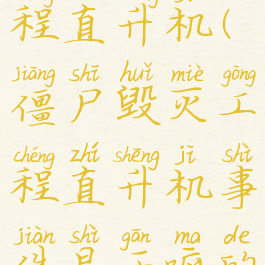 程直升机(
jiāng shī huǐ miè gōng
僵尸毁灭工
chéng zhí shēng jī shì
程直升机事
jiàn shì gàn ma de
件是干嘛的